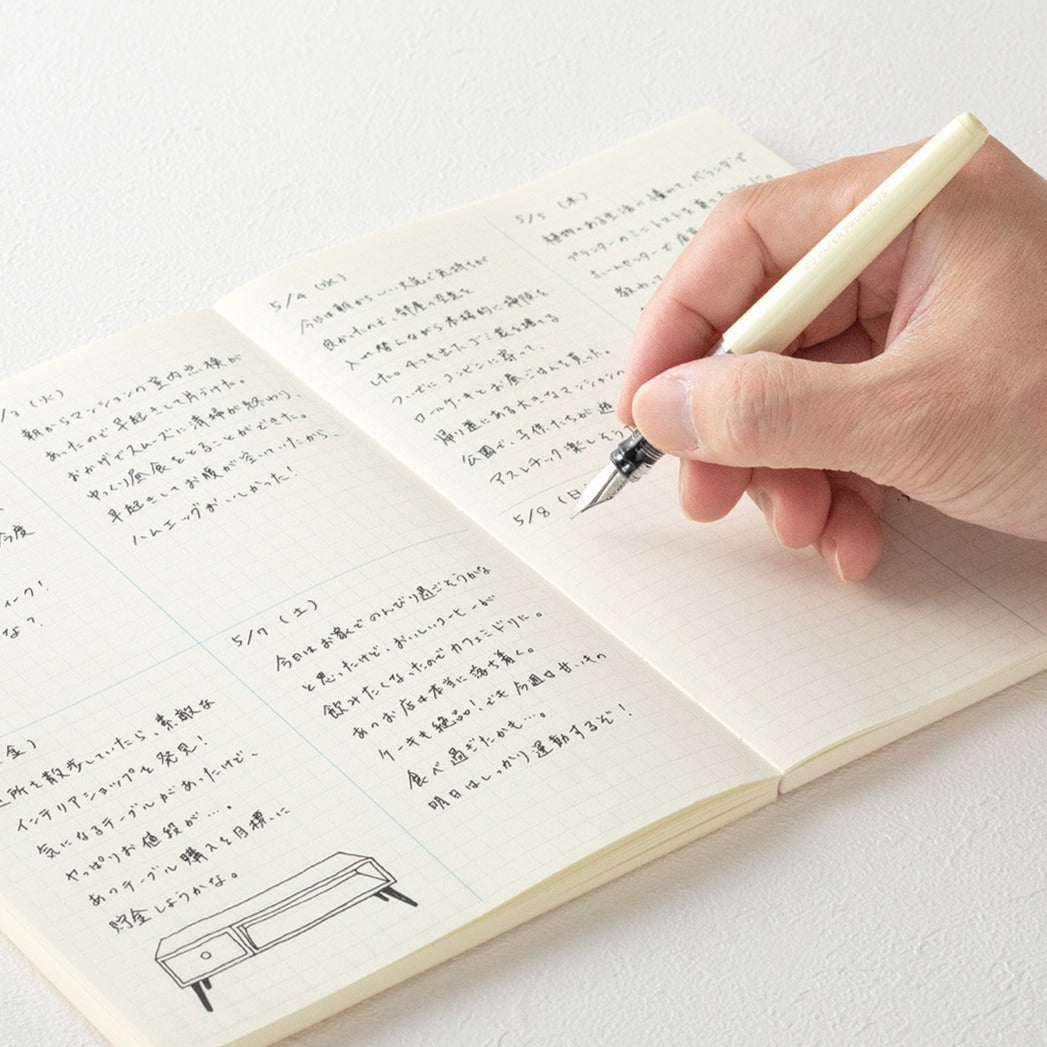 /3 (火)
朝からマンションの室内点検が
あったので早起きして片づけた。
おかげでスムーズに清掃が終わり、
ゆっくり昼食をとることができた。
早起きしてお腹が空いていたから、
ハムエッグがおいしかった!
今度
ィーク!
な?
金)
近所を散歩していたら、素敵な
インテリアショップを発見!
気になるテーブルがあったけど、
やっぱりお値段が…。
あのテーブル購入を目標に
貯金しようかな。
5/7 (土)
今日はお家でのんびり過ごそうかな
と思ったけど、おいしいコーヒーが
飲みたくなったのでカフェミドリに。
あのお店は本当に落ち着く。
ケーキも絶品!でも今週は甘いもの
食べ過ぎたかも…。
明日はしっかり運動するぞ!
5/4 (水)
今日は朝からいい天気で気持ちが
良かったので部屋の空気を
入れ替えながら本格的に掃除を
した。ゴミを捨てる
ついでにコンビニに寄って、
ロールケーキとお昼ごはんを買った。
帰り道にある大きなマンション
公園で、子供たちが遊
アスレチック楽しそう
5/5 (木)
植物のある生活に憧れて、ベランダで
プランターのミニトマトを
ホームセンターで店
教わっ
5/8 (日
PRODUCTS